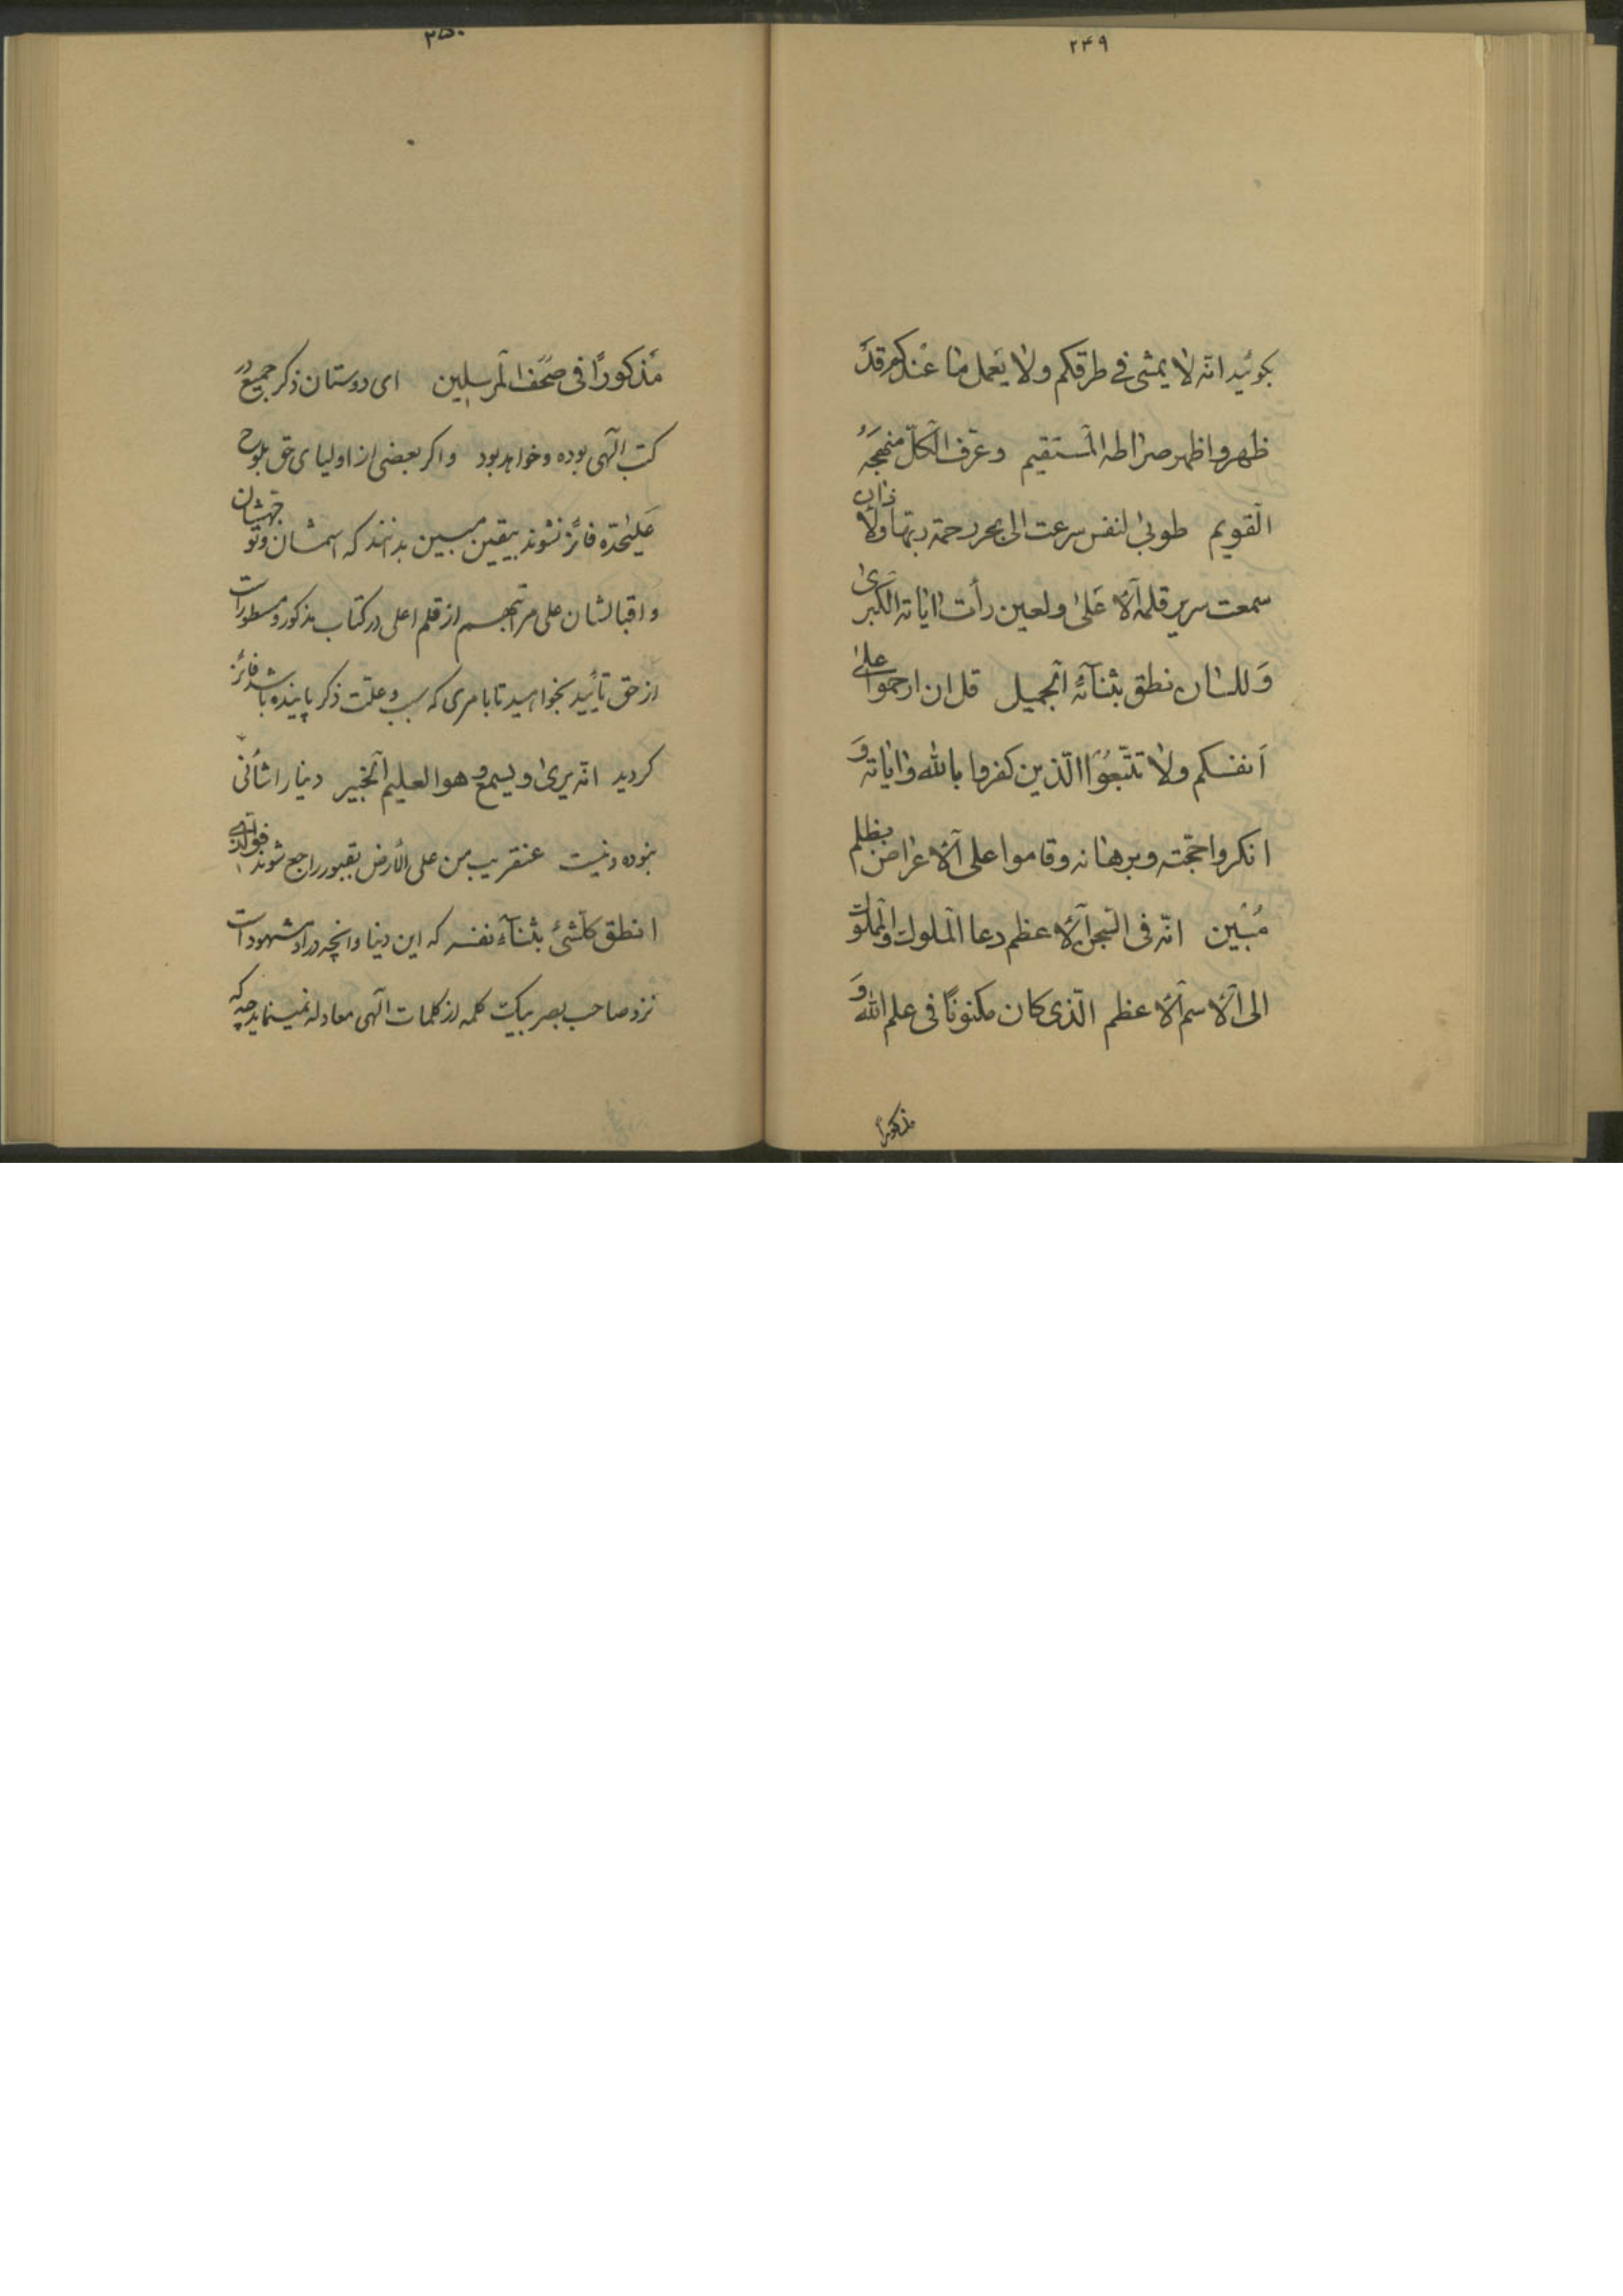 ۲۴۹
بگوئید انّه لا یمشی فی طرقکم ولا یعمل ما عندکم قد
ظهر و اظهر صراطه المستقیم وعرّف الکلّ منهجه
القویم طوبی لنفس سرعت الی بحر رحمة ربّها ولاذان
سمعت صریر قلمه الأعلی ولعین رأت ایاته الکبری
وللسان نطق بثنائه الجمیل قل ان ارحموا علی
انفسکم ولا تتّبعوا الّذین کفروا بالله وایاته و
انکروا حجّته وبرهانه وقاموا علی الاعراض بظلم
مُبین انّه فی السّجن الأعظم دعا الملوک والمملوک
الی الاسم الأعظم الّذی کان مکنونًا فی علم الله و
مذکورًا
۲۵۰
مذکورًا فی صحف المرسلین ای دوستان ذکر جمیع در
کتب الهی بوده و خواهد بود و اگر بعضی از اولیای حق بلوح
علیٰحدّه فائز نشوند بیقین مبین بدانند که اسمشان و توجّهشان
و اقبالشان علی مراتبهم از قلم اعلی در کتاب مذکور و مسطور است
از حق تأیید بخواهید تا بامری که سبب و علّت ذکر پاینده باشد فائز
گردید انّه یری ویسمع و هو العلیم الخبیر دنیا را شأنی
نبوده و نیست عنقریب من علی الأرض بقبور راجع شوند فوالّذی
انطق کلّشیئ بثنآء نفسه که این دنیا و آنچه در او مشهود است
نزد صاحب بصر بیک کلمه از کلمات الهی معادله نمینماید چه که